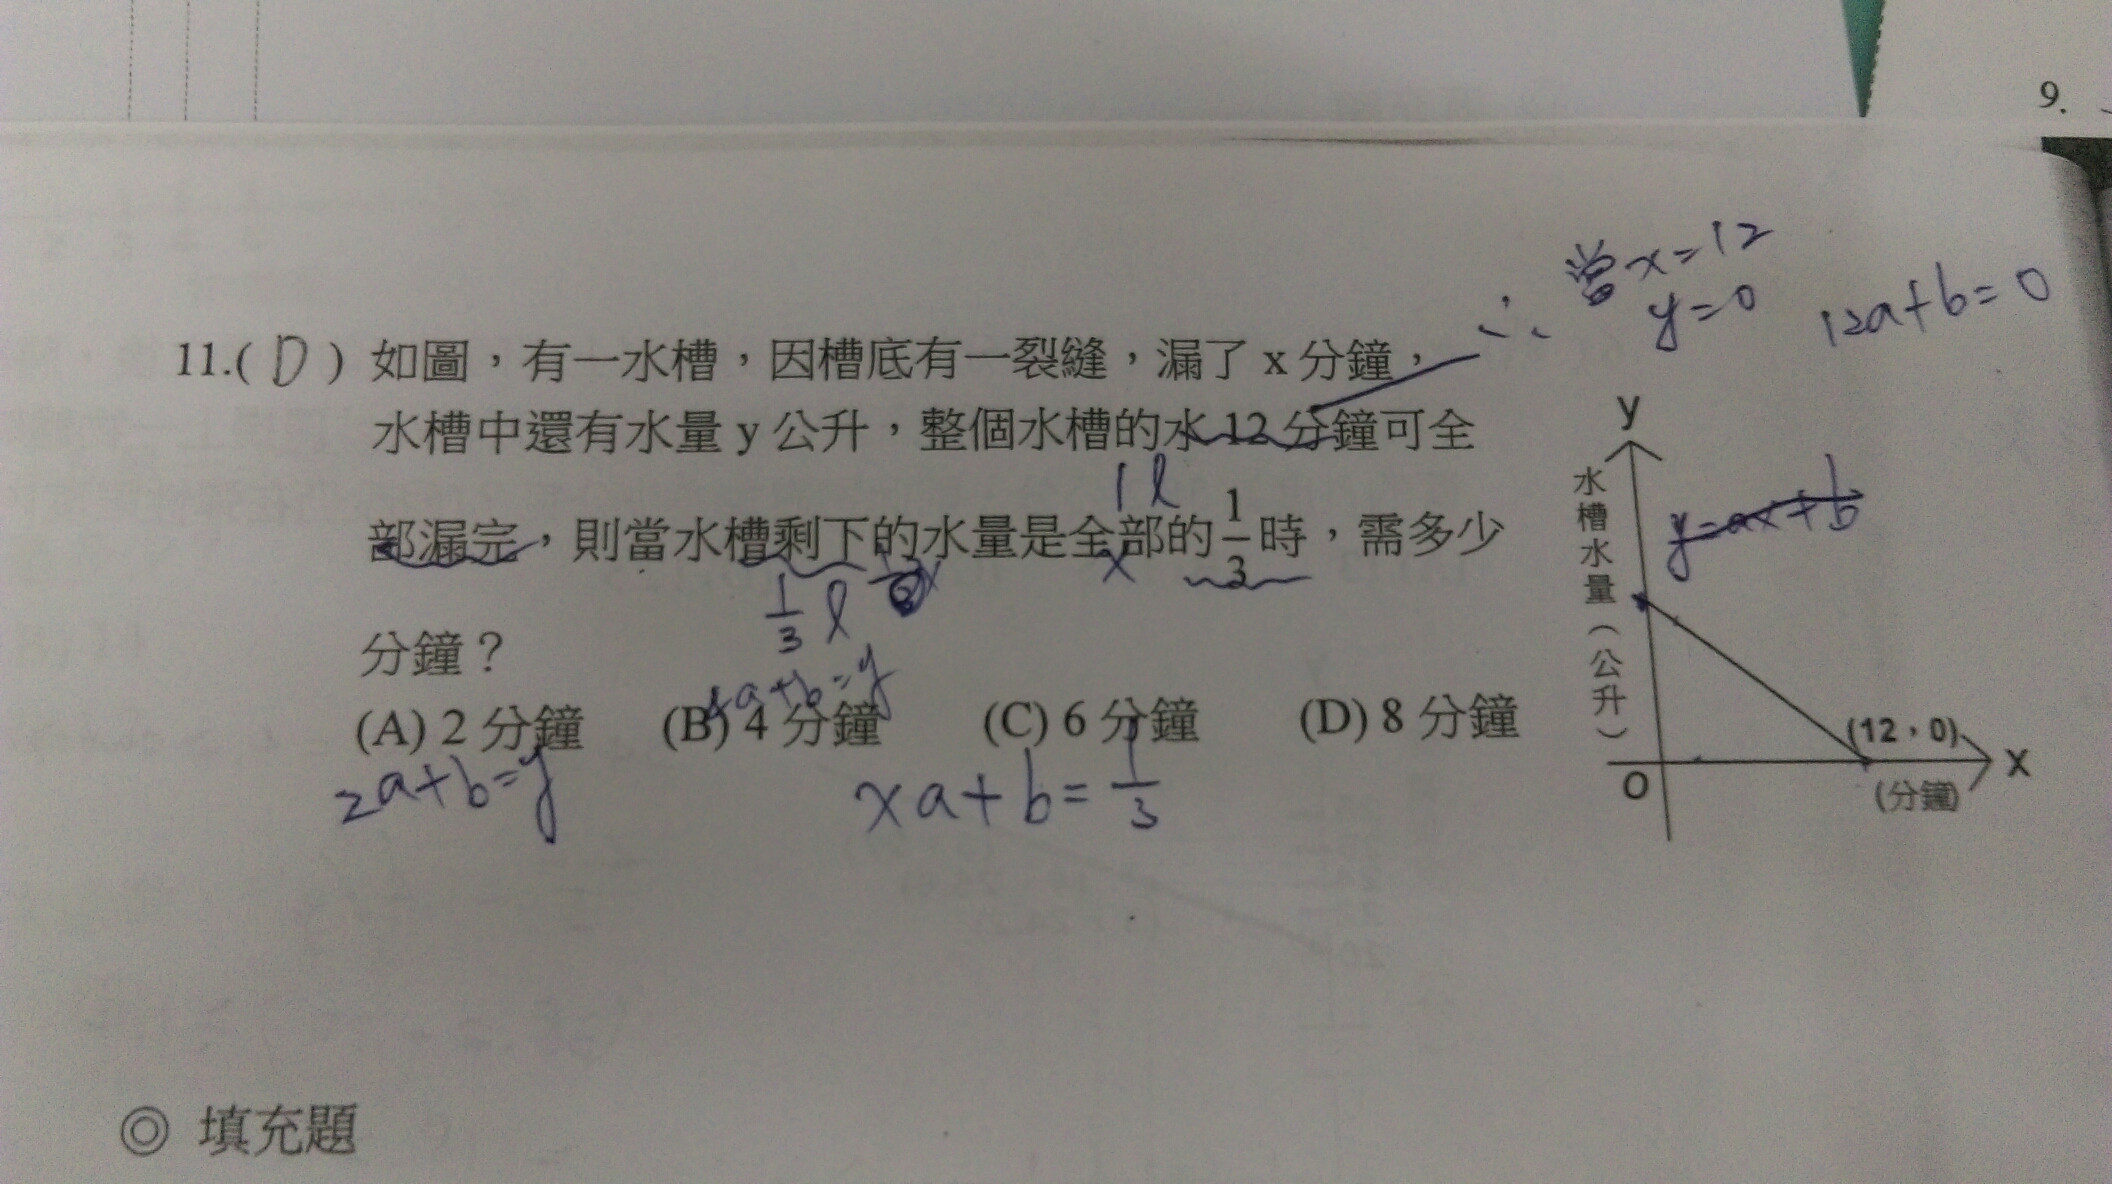 9.
當x=12
y=0
12a+b=0
11.( D ) 如圖，有一水槽，因槽底有一裂縫，漏了 x 分鐘，
∴
水槽中還有水量 y 公升，整個水槽的水 12 分鐘可全
1l
部漏完，則當水槽剩下的水量是全部的 1/3 時，需多少
x
1/3 l
分鐘？
a+b=y
(A) 2 分鐘 (B) 4 分鐘 (C) 6 分鐘 (D) 8 分鐘
2a+b=y
xa+b=1/3
y
水槽水量（公升）
y=ax+b
(12，0)
O
x
(分鐘)
◎ 填充題